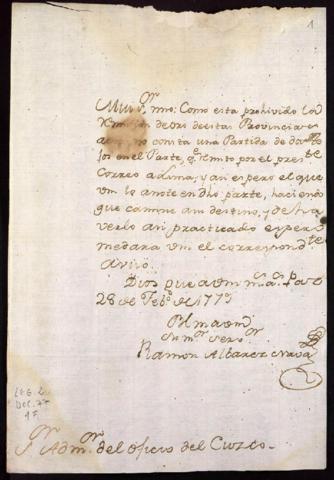 1
Muy Sr. mio: Como esta prohivido la
de oro de estas Provincias
consta una Partida de
en el Parte, q.e Remito por el pres.te
Correo a Lima, y asi espero el que
vm lo anote en dho parte, haciendo
que camine a su destino, y de ha
verlo asi practicado espero
me dara vm el correspond.te
aviso.
Dios gue a vm m.s a.s
28 de Feb.o de 177
BLM a vm
su m.or ser.or
Ramon Albarez Nava
LEG. 2
DOC. 77
1 F.
S.or Adm.or del Oficio del Cuzco.